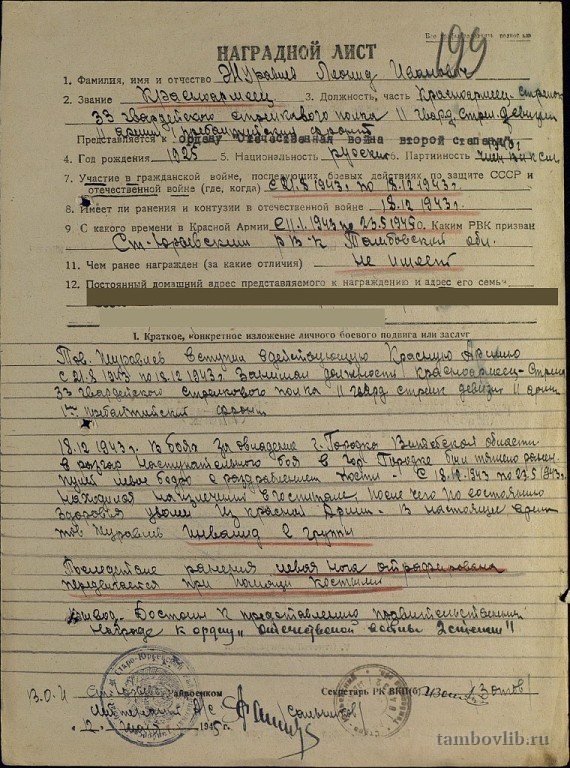 199
НАГРАДНОЙ ЛИСТ
1. Фамилия, имя и отчество Журавлев Леонид Иванович
2. Звание Красноармеец 3. Должность, часть Красноармеец-стрелок
33 гвардейского стрелкового полка 11 гвард. стрел. девизии
11 армии прибалтийский фронт
Представляется к ордену Отечественная война второй степени
4. Год рождения 1925 5. Национальность русский 6. Партийность
7. Участие в гражданской войне, последующих боевых действиях по защите СССР и
отечественной войне (где, когда) с 21.8 1943 г. по 18.12 1943 г.
8. Имеет ли ранения и контузии в отечественной войне 18.12 1943 г.
9 С какого времени в Красной Армии с 11.1. 1943 по Каким РВК призван
Ст-Юрьевским РВК Тамбовской обл.
11. Чем ранее награжден (за какие отличия) не имеет
12. Постоянный домашний адрес представляемого к награждению и адрес его семьи
I. Краткое, конкретное изложение личного боевого подвига или заслуг
Тов. Журавлев вступил в действующую Красную Армию
с 21.8 1943 по 18.12 1943 г. Занимал должность Красноармеец-стрелок
33 гвардейского стрелкового полка 11 гвард стрелк девизии 11 армии
прибалтийский фронт
18.12 1943 г. в боях за овладение г. Городка Витебской области
в разгар наступательного боя в гор. Городке был тяжело ранен
пулей левое бедро с раздроблением кости - с 18.12.1943 по
находился на излечении в госпитале после чего по состоянию
здоровья уволен из Красной Армии - в настоящее время
тов. Журавлев инвалид 2 группы
Последствие ранения левая нога атрофирована
передвигается при помощи костылей
Вывод. Достоин к представлению правительственной
награде к ордену „Отечественной войны 2 степени"
Райвоенком
Секретарь РК ВКП(б) Зотов)
2 1945 г.
tambovlib.ru